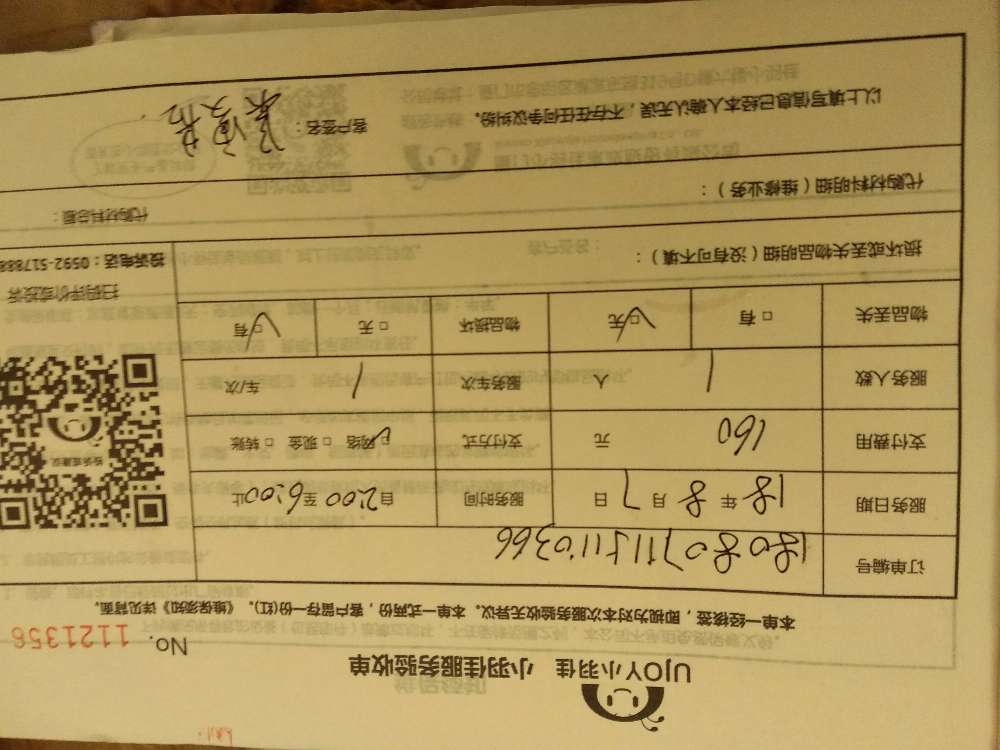 UJOY小羽佳 小羽佳服务验收单
No. 1121356
本单一经核签,即视为对本次服务验收无异议。本单一式两份,客户留存一份(红)。《维保须知》详见背面。
订单编号 1808071151110366
服务日期 18 年 8 月 7 日 服务时间 自 2:00 至 6:00 止
支付费用 160 元 支付方式 ☑网络 □现金 □转账
服务人数 1 人 服务车次 1 车/次
物品丢失 □有 ☑无 物品损坏 □无 ☑有
扫码评价或投客
投诉电话:0592-517888
损坏或丢失物品明细(没有可不填):
代购材料明细(维修业务): 代购材料总额:
以上填写信息已经本人确认无误,不存在任何争议纠纷。 客户签名: